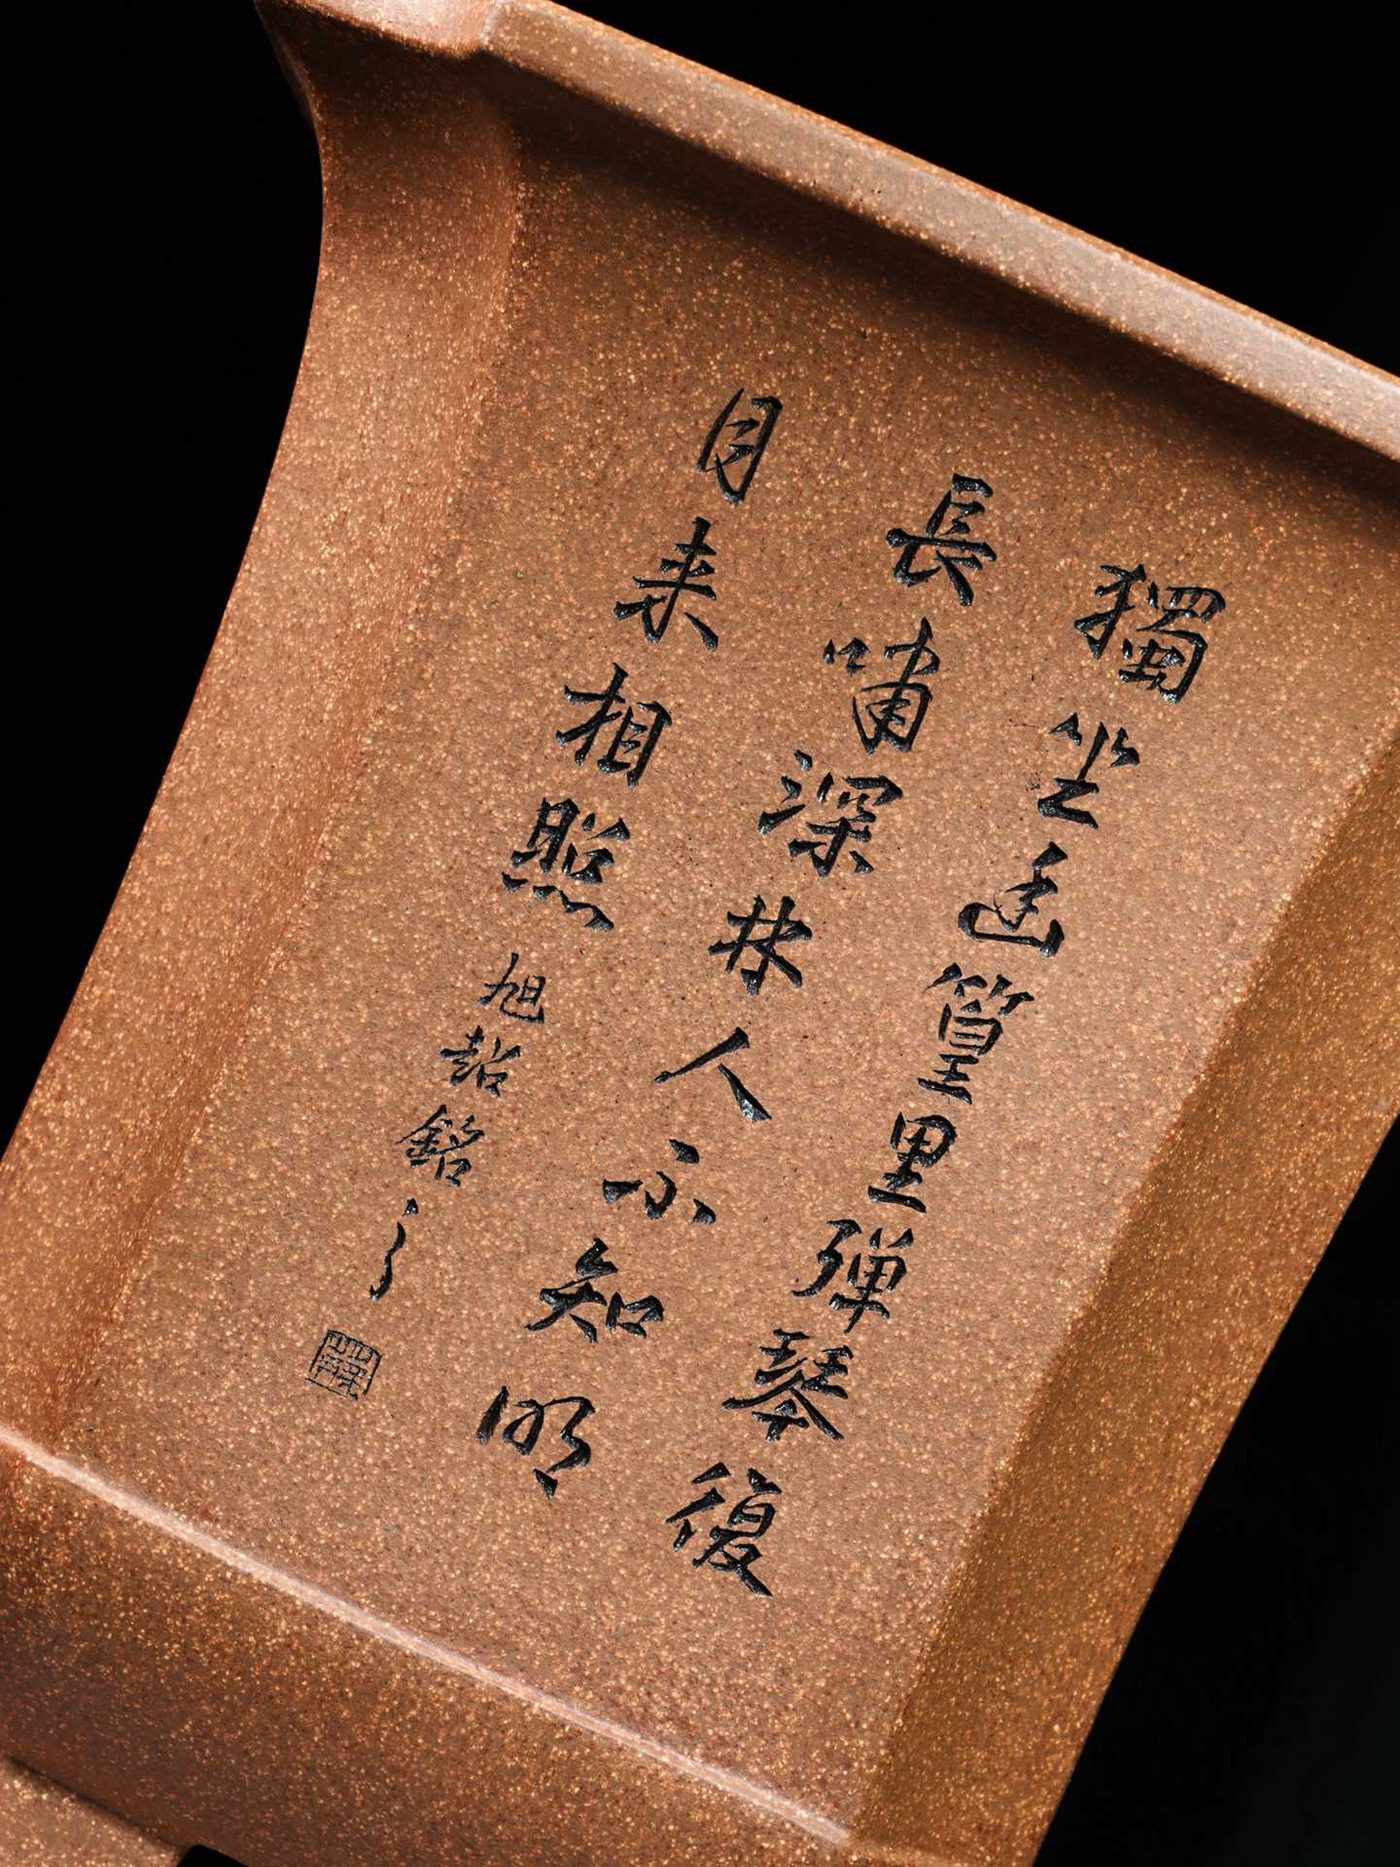 獨坐幽篁里彈琴復
長嘯深林人不知明
月来相照 旭喆銘之